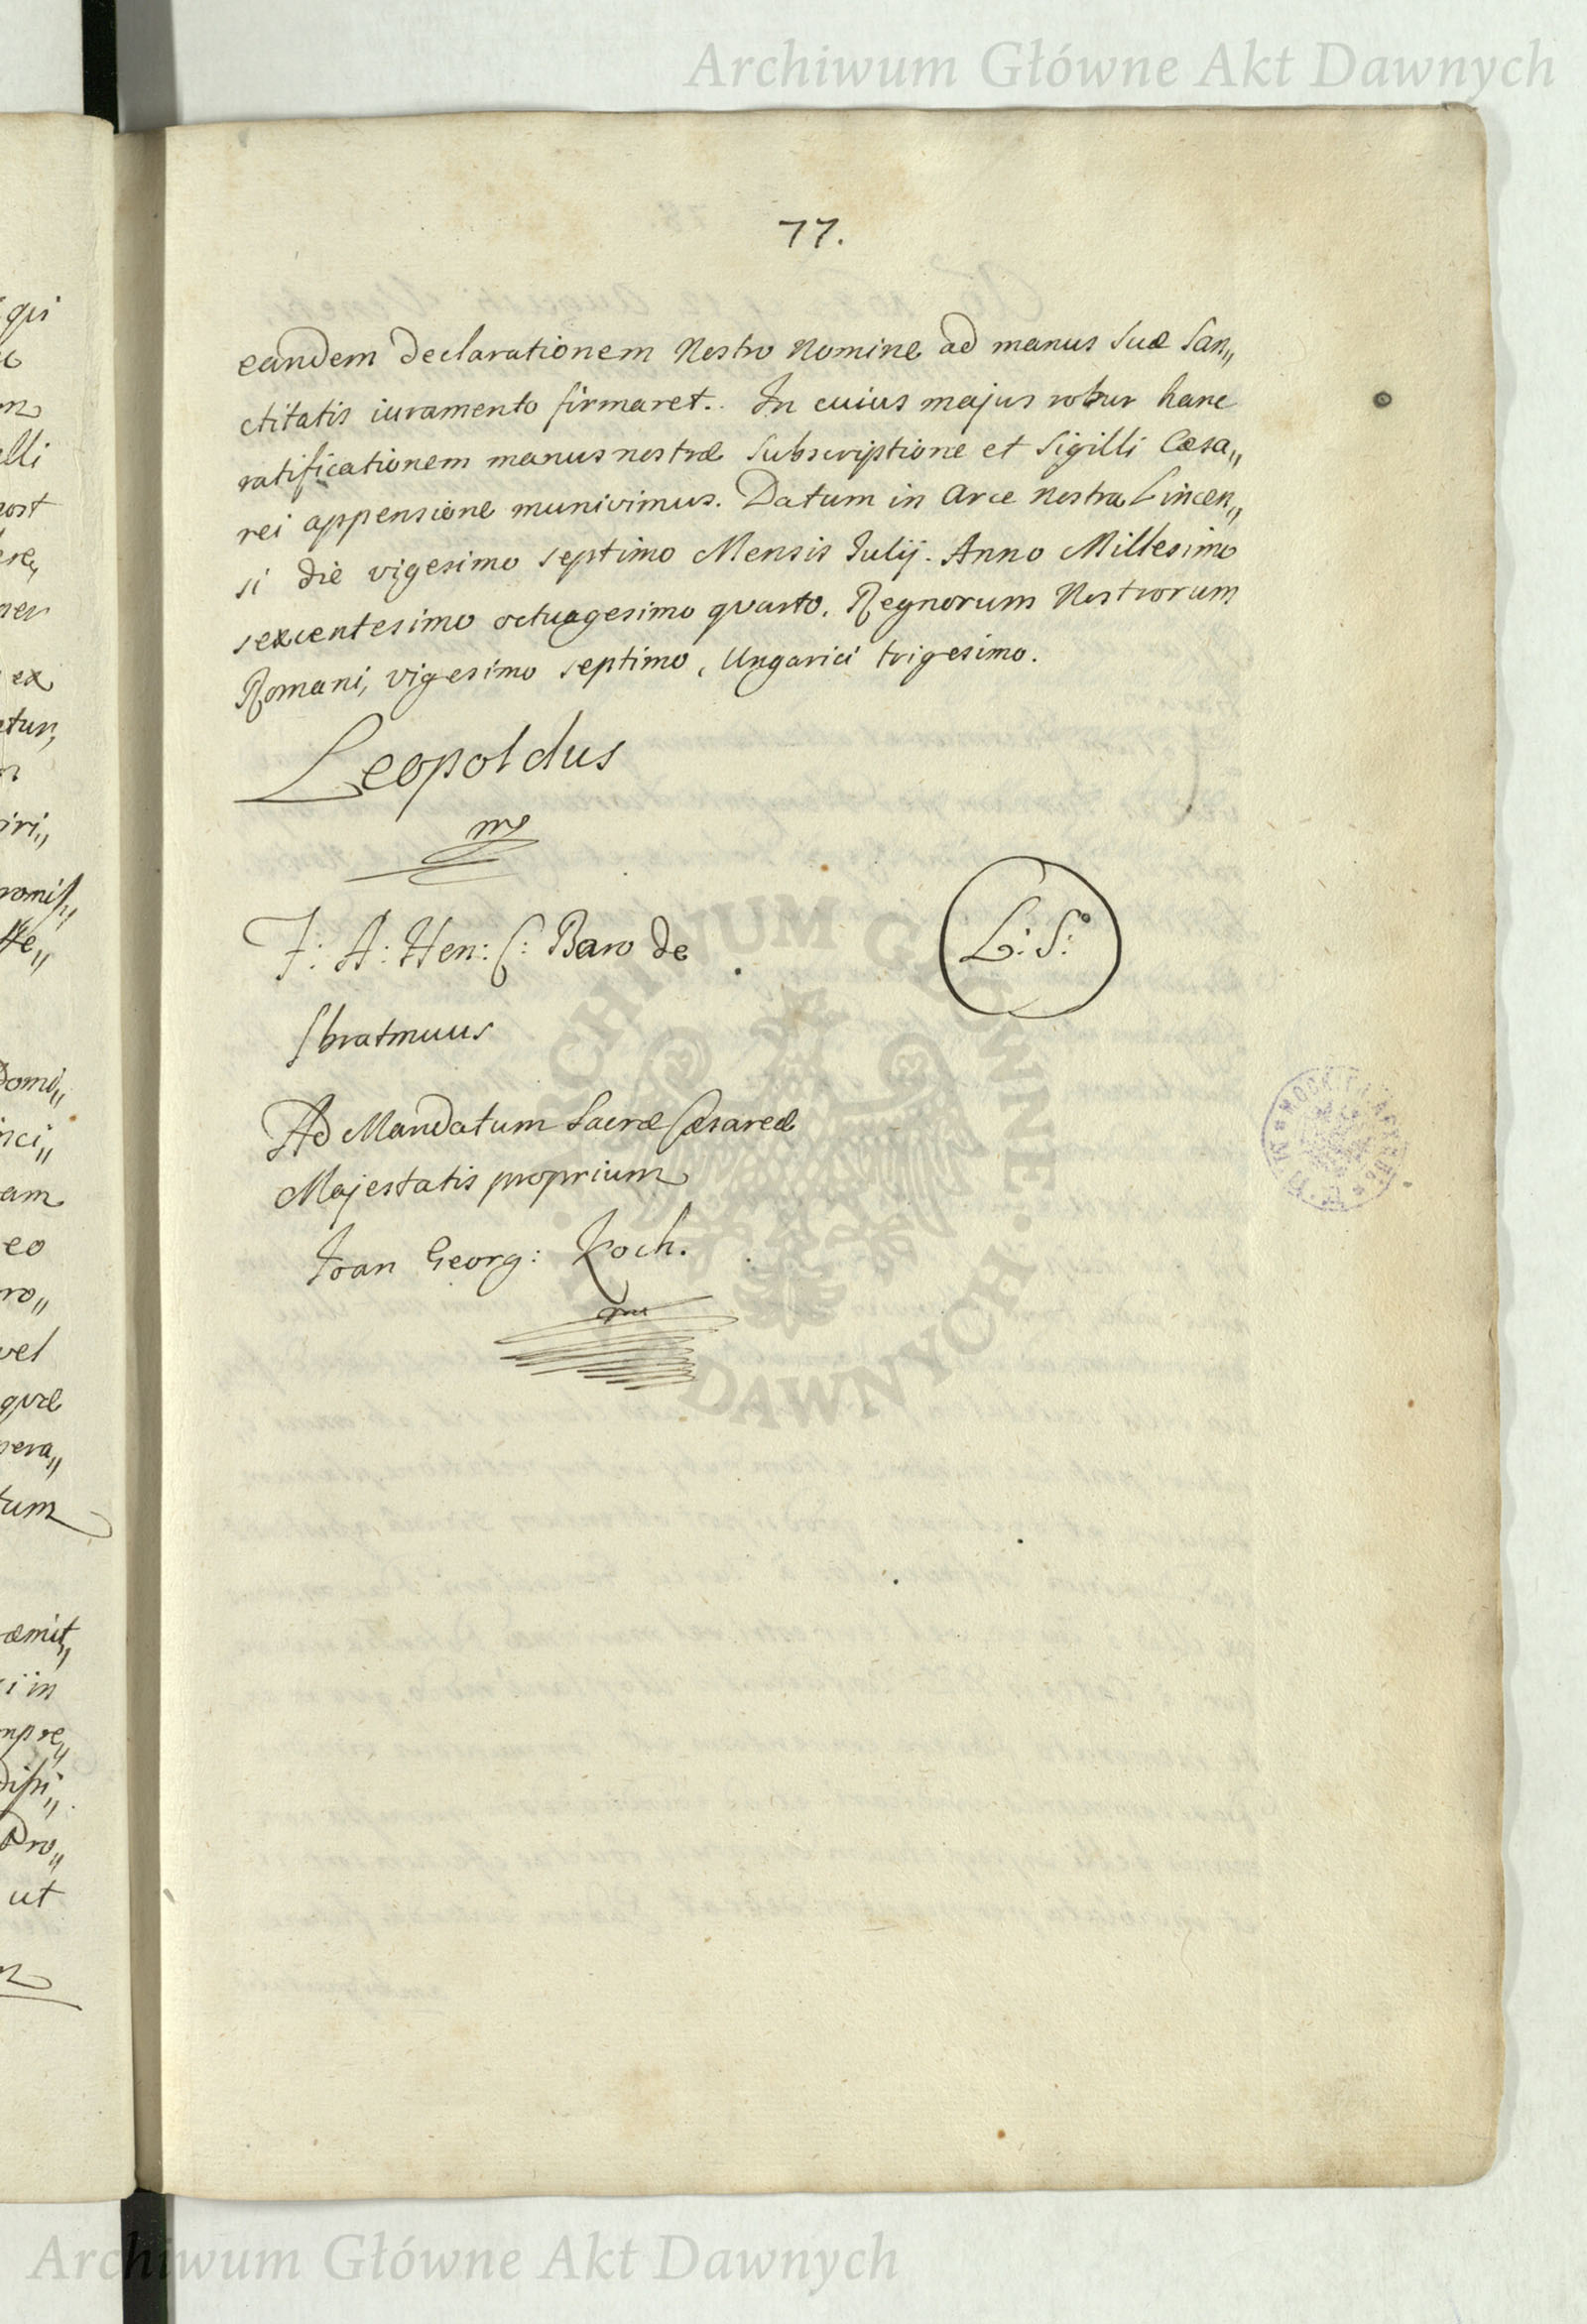 Archiwum Główne Akt Dawnych
77.
eandem declarationem Nostro Nomine ad manus suæ San„
ctitatis iuramento firmaret. In cuius majus robur hanc
ratificationem manus nostræ subscriptione et Sigilli Cæsa„
rei appensione munivimus. Datum in Arce nostra Lincen„
si die vigesimo septimo Mensis Julij. Anno Millesimo
sexcentesimo octuagesimo quarto. Regnorum Nostrorum
Romani, vigesimo septimo, Ungarici trigesimo.
Leopoldus
mp
F: A: Hen: C: Baro de
L: S:
Sbratmuus
Ad Mandatum Sacræ Cæsareæ
Majestatis proprium
Joan Georg: Koch.
mp
ARCHIWUM GŁÓWNE AKT DAWNYCH
gis
elli
post
ex
etur,
iri„
romis„
Domi„
nci„
am
eo
ro„
vel
quæ
pera„
tum
æmit„
i in
mpre„
Pro„
ut
Archiwum Główne Akt Dawnych